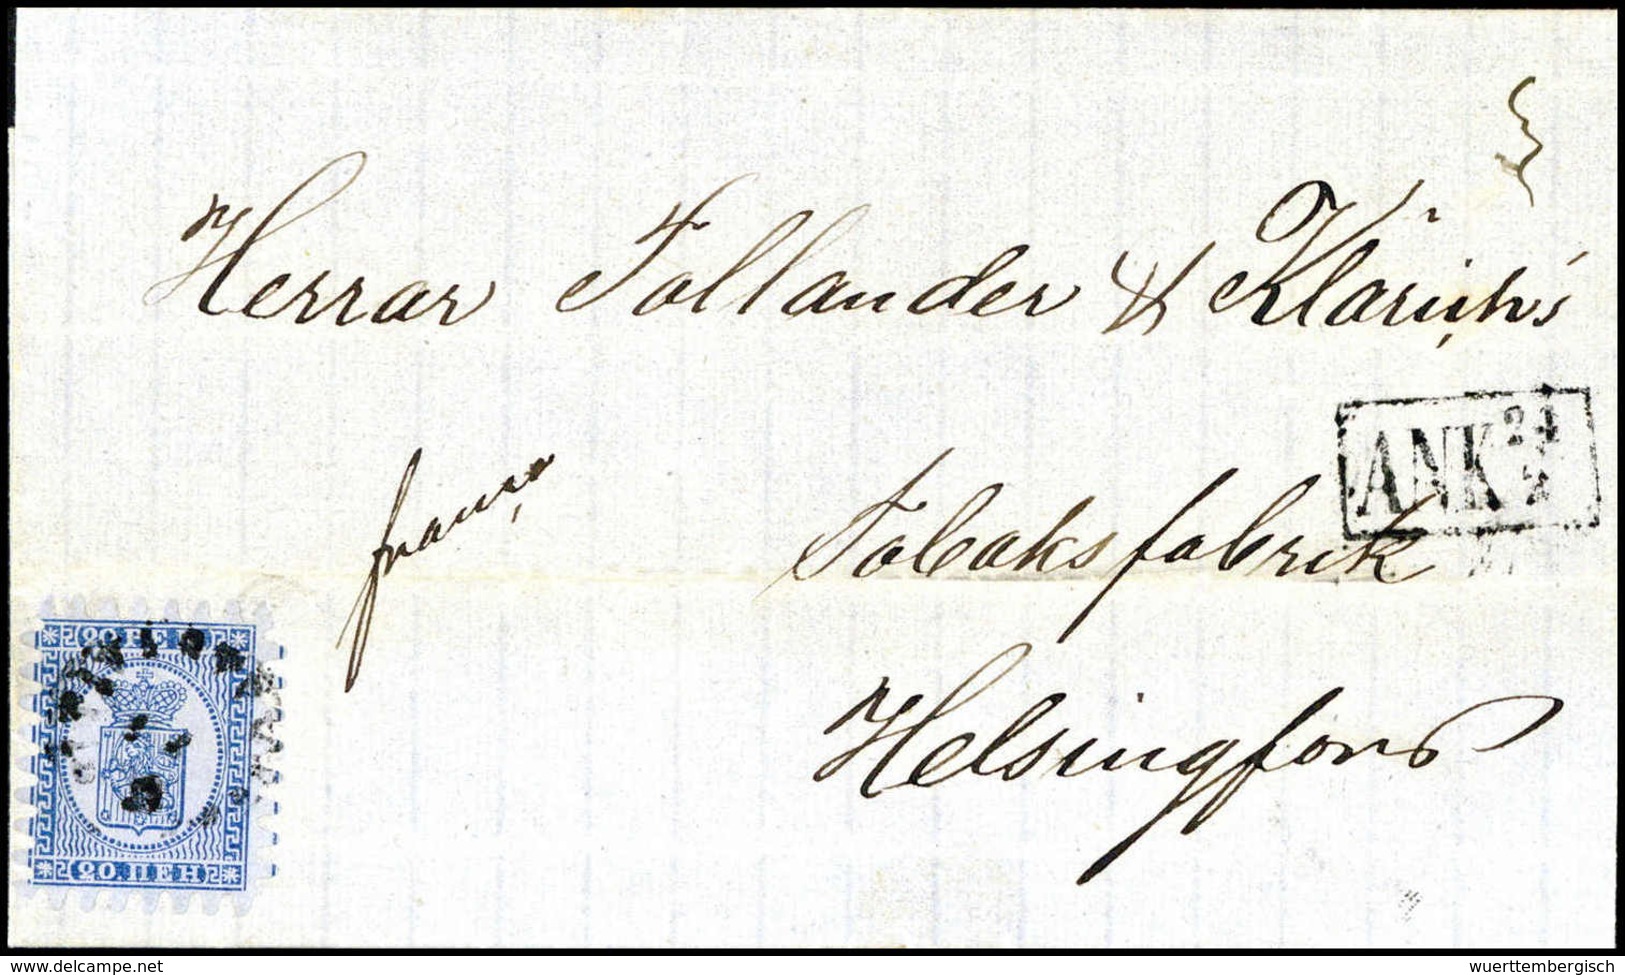 Herrar Tollander & Klärich's
franco
ANK 24
Tobaksfabrik
Helsingfors
20 PEN
20 ПЕН
delcampe.net
wuerttembergisch